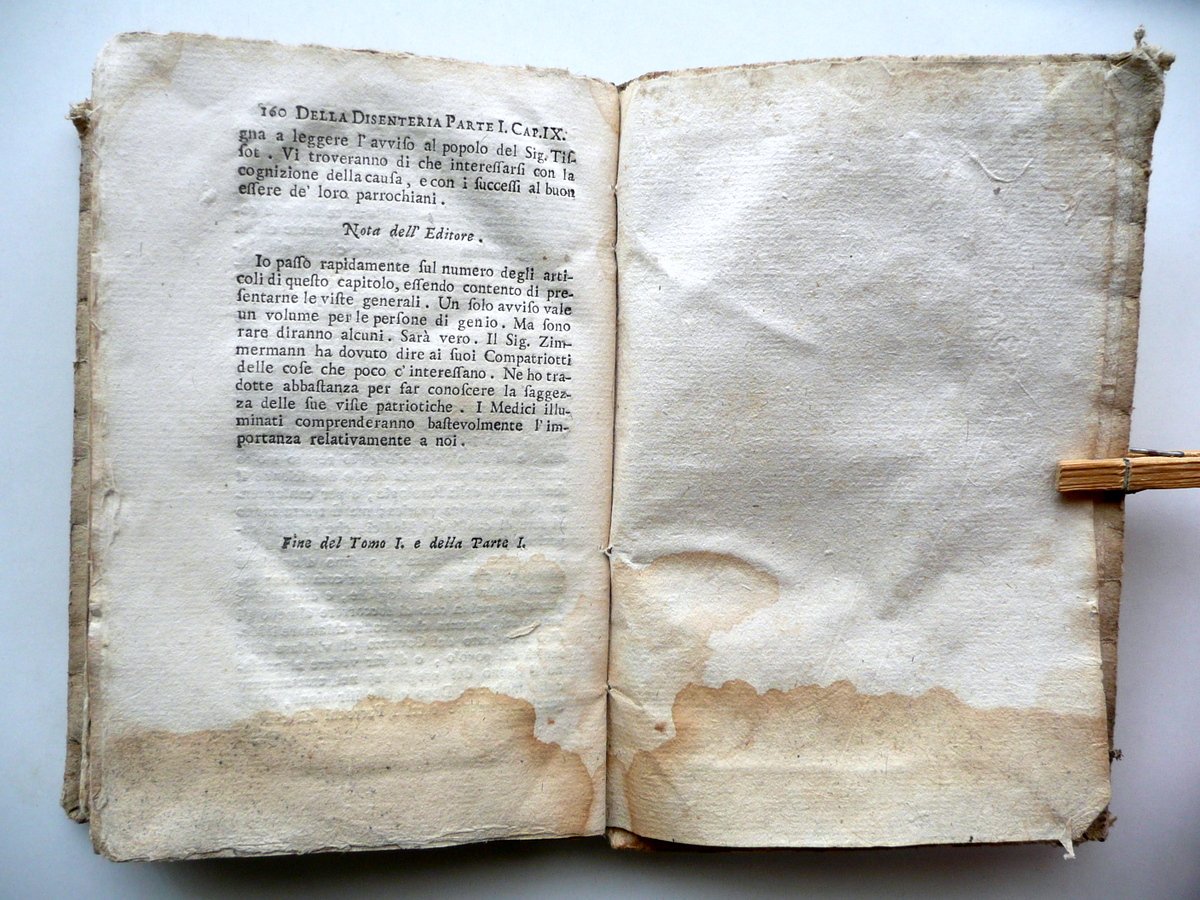 160 DELLA DISENTERIA PARTE I. CAP. IX.
gna a leggere l'avviſo al popolo del Sig. Tiſ-
ſot. Vi troveranno di che intereſſarſi con la
cognizione della cauſa, e con i ſucceſſi al buon
eſſere de' loro parrochiani.
Nota dell' Editore.
Io paſſo rapidamente ſul numero degli arti-
coli di queſto capitolo, eſſendo contento di pre-
ſentarne le viſte generali. Un ſolo avviſo vale
un volume per le perſone di genio. Ma ſono
rare diranno alcuni. Sarà vero. Il Sig. Zim-
mermann ha dovuto dire ai ſuoi Compatriotti
delle coſe che poco c'intereſſano. Ne ho tra-
dotte abbaſtanza per far conoſcere la ſaggez-
za delle ſue viſte patriotiche. I Medici illu-
minati comprenderanno baſtevolmente l'im-
portanza relativamente a noi.
Fine del Tomo I. e della Parte I.